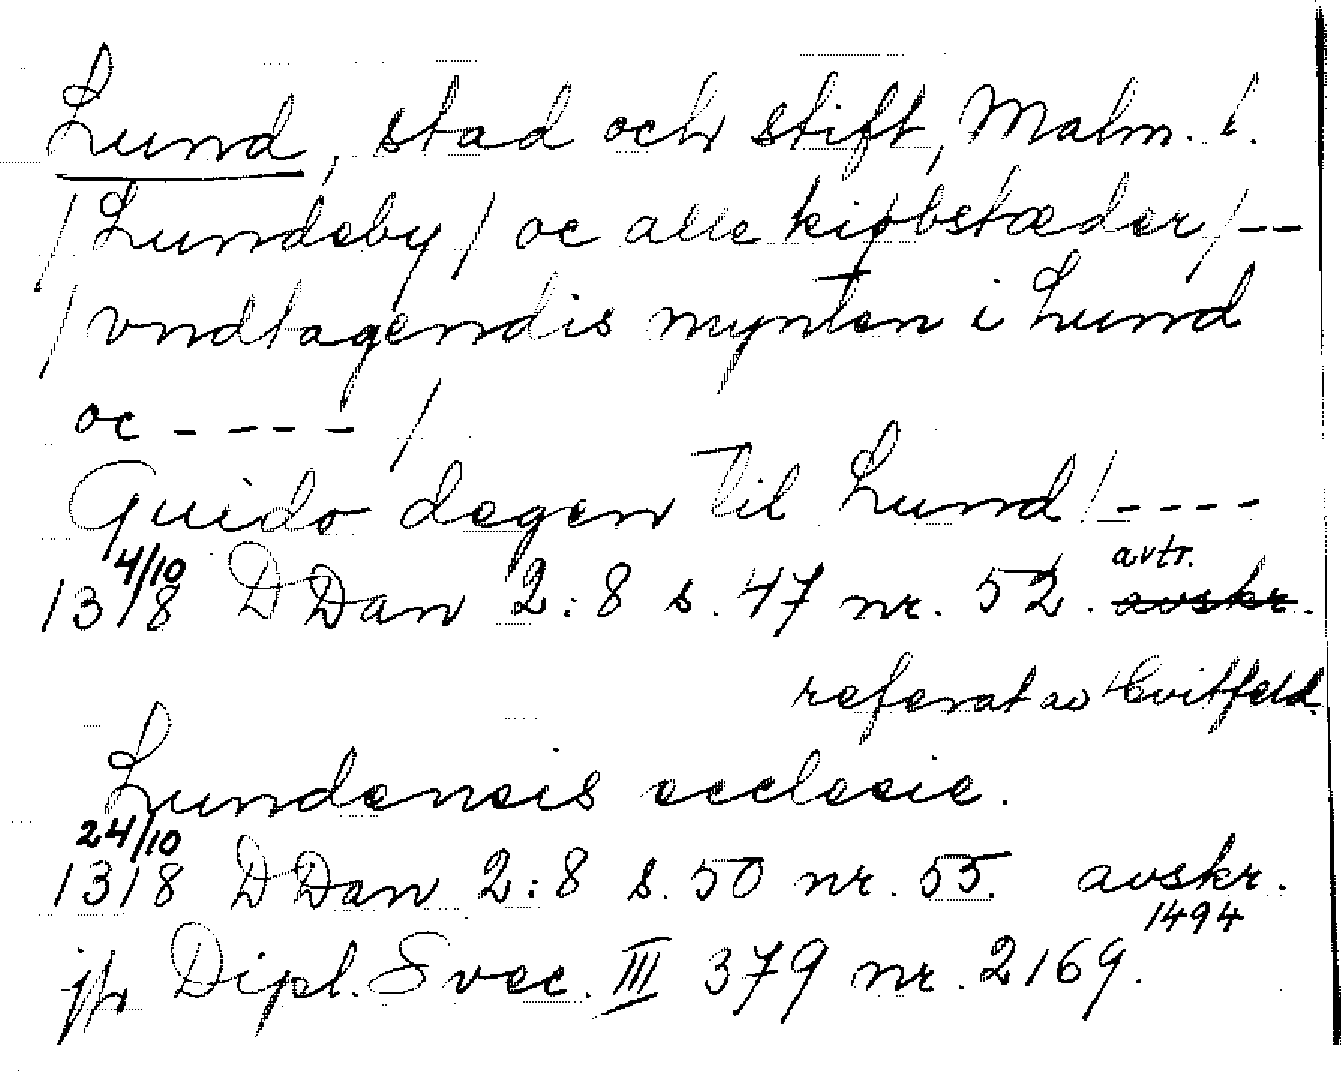 Lund, stad och stift, Malm. l.
/Lundeby/ oc alle kiøbstæder/--
/vndtagendis mynten i Lund
oc ---- /
Guido degen til Lund/----
avtr.
4/10
1318 DDan 2:8 s. 47 nr. 52. avskr.
referat av Hvitfeld.
Lundensis ecclesie.
24/10
1318 DDan 2:8 s. 50 nr. 55. avskr.
1494
jfr Dipl. Svec. III 379 nr. 2169.